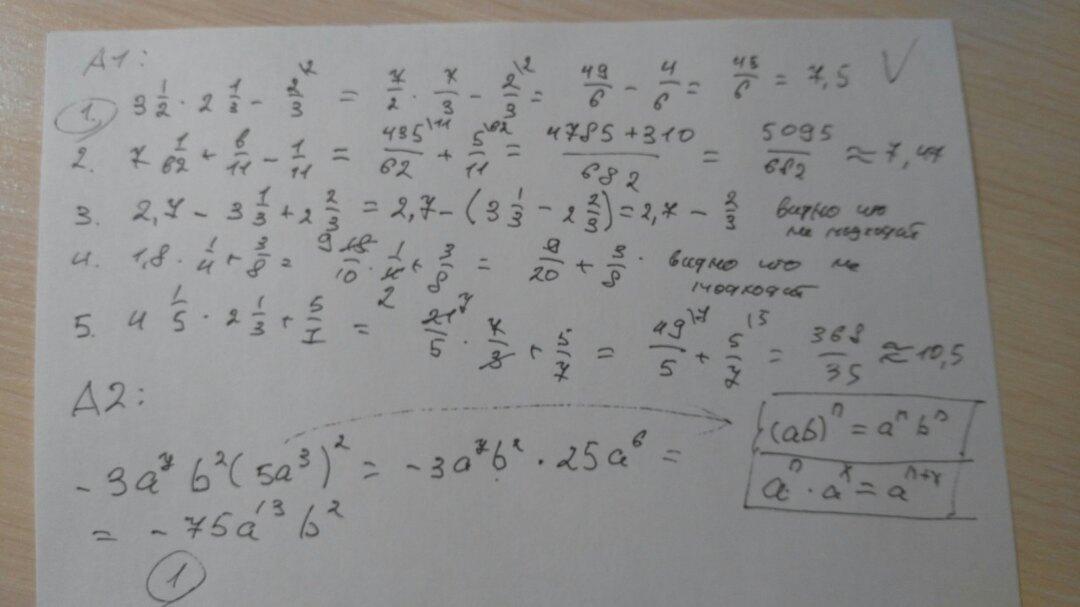 A1:
1. 3 1/2 · 2 1/3 - 2/3 \2 = 7/2 · 7/3 - 2/3 \2 = 49/6 - 4/6 = 45/6 = 7,5 V
2. 7 1/62 + 6/11 - 1/11 = 435/62 \11 + 5/11 \62 = (4785+310)/682 = 5095/682 ≈ 7,47
3. 2,7 - 3 1/3 + 2 2/3 = 2,7 - (3 1/3 - 2 2/3) = 2,7 - 2/3 видно что не подходит
4. 1,8 · 1/4 + 3/8 = 9 18/10 · 1/4 2 + 3/8 = 9/20 + 3/8 · видно что не подходит
5. 4 1/5 · 2 1/3 + 5/7 = 21/5 7 · 7/3 + 5/7 = 49/5 \7 + 5/7 \5 = 368/35 ≈ 10,5
A2:
-3a⁷b²(5a³)² = -3a⁷b² · 25a⁶ =
= -75a¹³b²
(ab)ⁿ = aⁿbⁿ
aⁿ · aˣ = aⁿ⁺ˣ
1